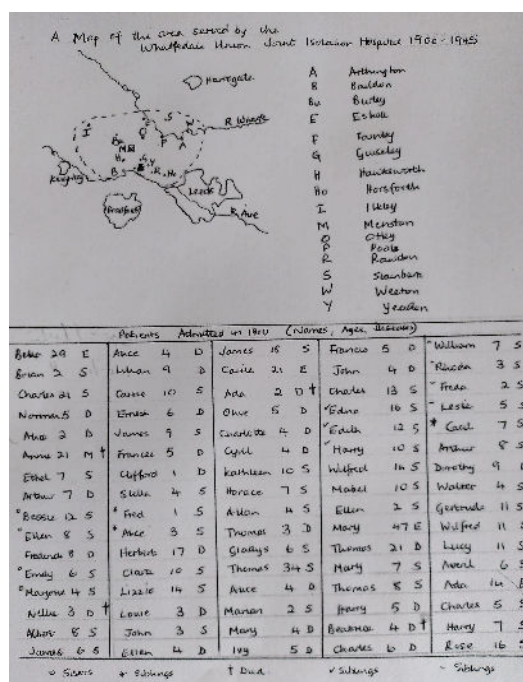 A Map of the area served by the
Wharfedale Union Joint Isolation Hospital 1900-1945
Harrogate
R Wharfe
Keighley
Bradford
Leeds
R Aire
A Arthington
B Baildon
Bu Burley
E Esholt
F Farnley
G Guiseley
H Hawksworth
Ho Horsforth
I Ilkley
M Menston
O Otley
P Poole
R Rawdon
S Stainburn
W Weeton
Y Yeadon
Patients Admitted in (Names, Ages, Diseases)
29 E Alice 4 D James 15 S Francis 5 D William 7 S
Brian 2 S Lilian 9 D 21 E John 4 D Rhoda 3 S
Charles 21 S Carrie 10 S Ada 2 D † Charles 13 S Freda 2 S
Norman 5 D Ernest 6 D Olive 5 D Edna 10 S Leslie 5 S
2 D James 9 S Charlotte 4 D Edith 12 S Cecil 7 S
Annie 21 M † Frances 5 D Cyril 4 D Harry 10 S Arthur 8 S
Ethel 7 S Clifford 1 D Kathleen 10 S Wilfred 14 S Dorothy 9
Arthur 7 D Stella 4 S Horace 7 S Mabel 10 S Walter 4 S
Bessie 12 S Fred 1 S Allan 4 S Ellen 2 S Gertrude 11 S
Ellen 8 S Alice 3 S Thomas 3 D Mary 47 E Wilfred 11 S
Frederick 8 D Herbert 17 D Gladys 6 S Thomas 21 D Lucy 11 S
Emily 6 S 10 S Thomas 34 S Mary 7 S 6 S
Marjorie 4 S Lizzie 14 S Alice 4 D Thomas 8 S Ada 14
Nellie 3 D † Louie 3 D Marian 2 S Harry 5 D Charles 5 S
Albert 8 S John 3 S Mary 4 D Beatrice 4 D † Harry 7 S
James 6 S Ellen 4 D Ivy 5 D Charles 6 D Rose 16 S
o Sisters + Siblings † Died ✓ Siblings ~ Siblings